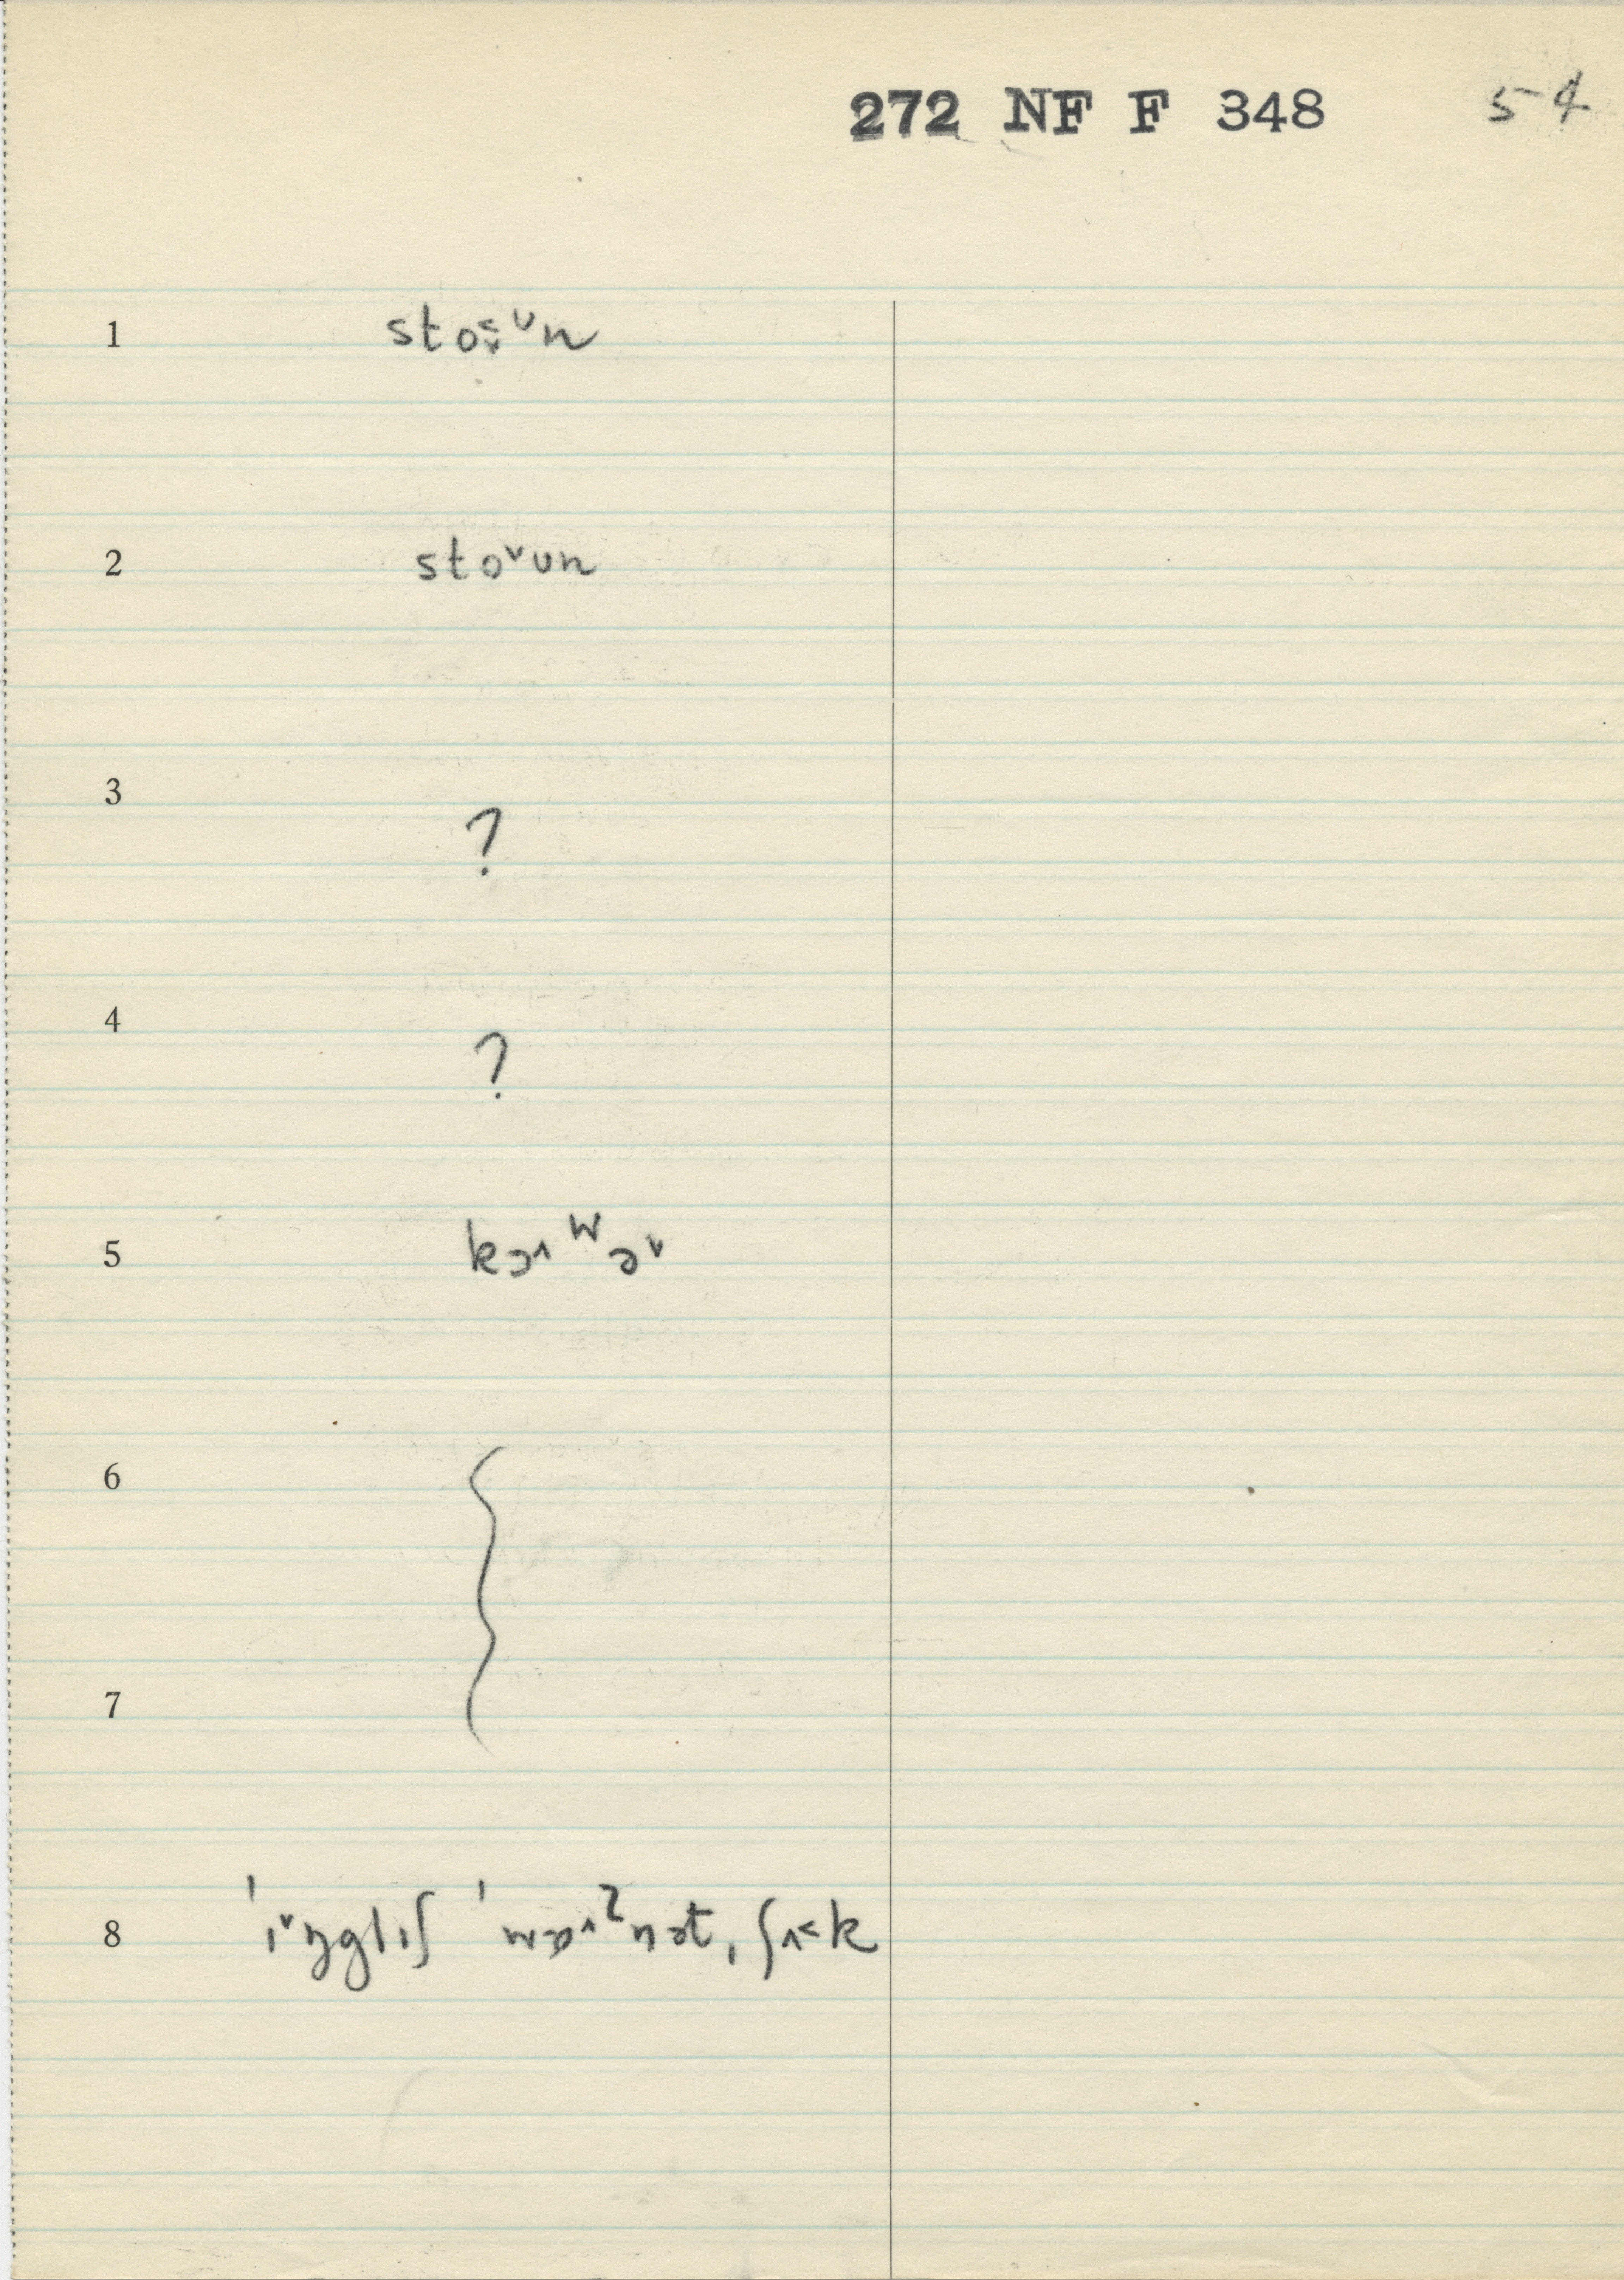 272 NF F 348 54
1 sto˂̬ᶷn
2 sto˅ʊn
3 ?
4 ?
5 kɔ˄ʷə˅
6
7
8 ˈɪ˅ŋglɪʃ ˈwɒ˄ˀnət, ʃʌ˂k